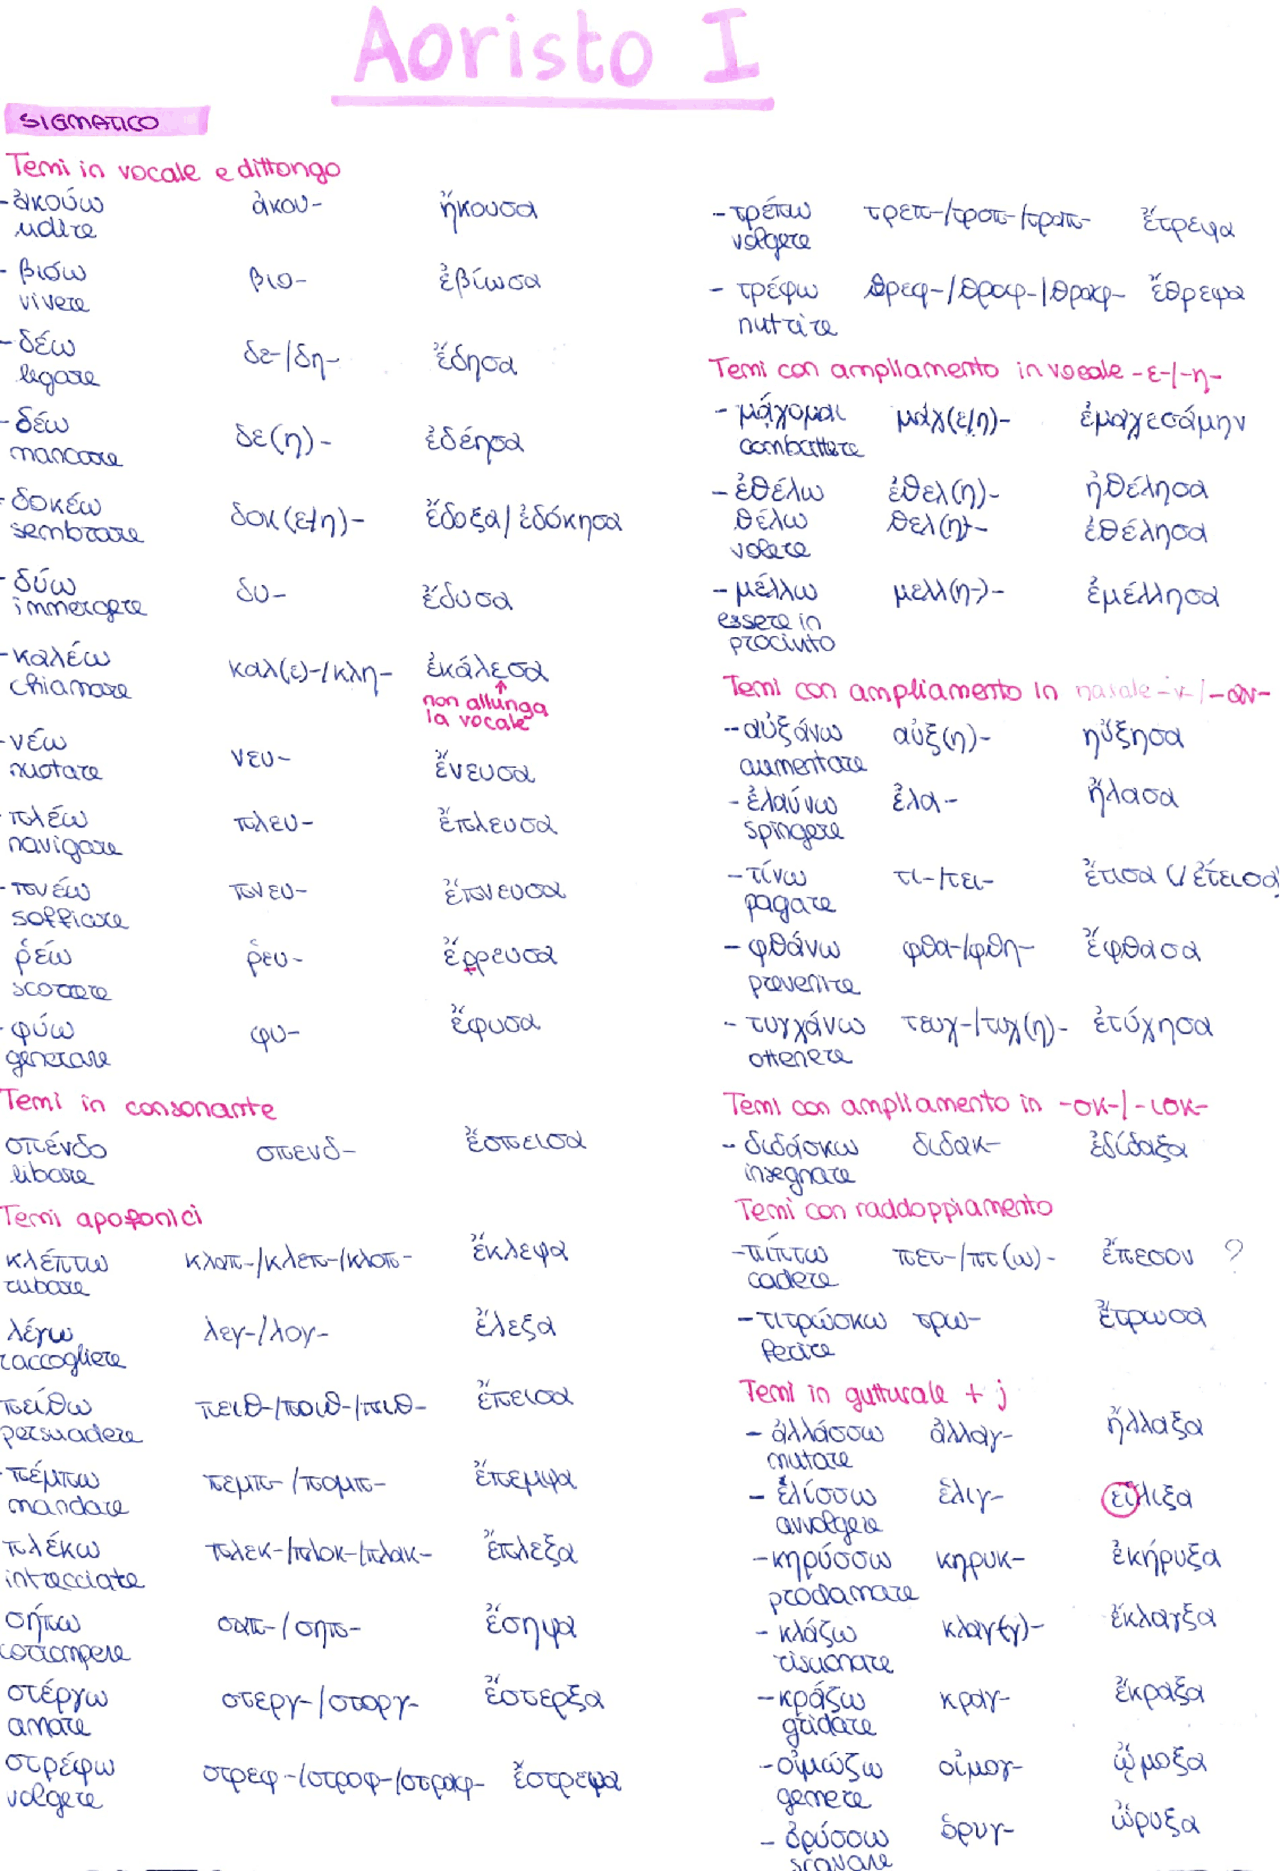 Aoristo I
SIGMATICO
Temi in vocale e dittongo
-ἀκούω ἀκου- ἤκουσα
udire
- βιόω βιο- ἐβίωσα
vivere
-δέω δε-/δη- ἔδησα
legare
-δέω δε(η)- ἐδέησα
mancare
-δοκέω δοκ(ε/η)- ἔδοξα/ἐδόκησα
sembrare
-δύω δυ- ἔδυσα
immergere
-καλέω καλ(ε)-/κλη- ἐκάλεσα
chiamare
non allunga
la vocale
-νέω νευ- ἔνευσα
nuotare
-πλέω πλευ- ἔπλευσα
navigare
-πνέω πνευ- ἔπνευσα
soffiare
ῥέω ῥευ- ἔρρευσα
scorrere
-φύω φυ- ἔφυσα
generare
Temi in consonante
σπένδο σπενδ- ἔσπεισα
libare
Temi apofonici
κλέπτω κλαπ-/κλεπ-/κλοπ- ἔκλεψα
rubare
λέγω λεγ-/λογ- ἔλεξα
raccogliere
πείθω πειθ-/ποιθ-/πιθ- ἔπεισα
persuadere
-πέμπω πεμπ-/πομπ- ἔπεμψα
mandare
πλέκω πλεκ-/πλοκ-/πλακ- ἔπλεξα
intrecciate
σήπω σαπ-/σηπ- ἔσηψα
corrompere
στέργω στεργ-/στοργ- ἔστερξα
amare
στρέφω στρεφ-/στροφ-/στραφ- ἔστρεψα
volgere
-τρέπω τρεπ-/τροπ-/τραπ- ἔτρεψα
volgere
- τρέφω θρεφ-/θροφ-/θραφ- ἔθρεψα
nutrire
Temi con ampliamento in vocale -ε-/-η-
- μάχομαι μάχ(ε/η)- ἐμαχεσάμην
combattere
-ἐθέλω ἐθελ(η)- ἠθέλησα
θέλω θελ(η)- ἐθέλησα
volere
-μέλλω μελλ(η-)- ἐμέλλησα
essere in
procinto
Temi con ampliamento in nasale -ν-/-αν-
-αὐξάνω αὐξ(η)- ηὔξησα
aumentare
-ἐλαύνω ἐλα- ἤλασα
spingere
-τίνω τι-/τει- ἔτισα (/ἔτεισα)
pagare
- φθάνω φθα-/φθη- ἔφθασα
prevenire
- τυγχάνω τευχ-/τυχ(η)- ἐτύχησα
ottenere
Temi con ampliamento in -σκ-/-ισκ-
- διδάσκω διδακ- ἐδίδαξα
insegnare
Temi con raddoppiamento
-πίπτω πετ-/πτ(ω)- ἔπεσον ?
cadere
-τιτρώσκω τρω- ἔτρωσα
ferire
Temi in gutturale + j
- ἀλλάσσω ἀλλαγ- ἤλλαξα
mutare
- ἑλίσσω ἑλιγ- εἵλιξα
avvolgere
-κηρύσσω κηρυκ- ἐκήρυξα
proclamare
- κλάζω κλαγ(γ)- ἔκλαγξα
risuonare
-κράζω κραγ- ἔκραξα
gridare
-οἰμώζω οἰμογ- ᾤμοξα
gemere
- ὀρύσσω ὀρυγ- ὤρυξα
scavare